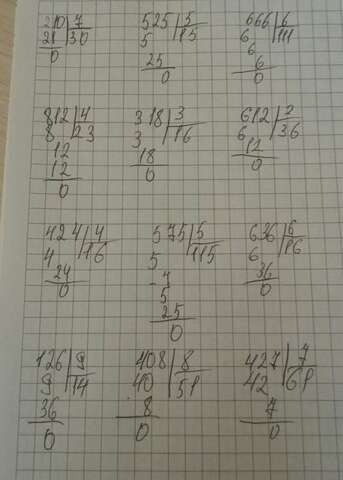 210 | 7
21 | 30
0
525 | 5
5 | 15
25
0
666 | 6
6 | 111
6
6
0
812 | 4
8 | 23
12
12
0
318 | 3
3 | 16
18
0
612 | 2
6 | 36
12
0
424 | 4
4 | 16
24
0
575 | 5
5 | 115
5
25
0
636 | 6
6 | 16
36
0
126 | 9
9 | 14
36
0
408 | 8
40 | 51
8
0
427 | 7
42 | 61
7
0